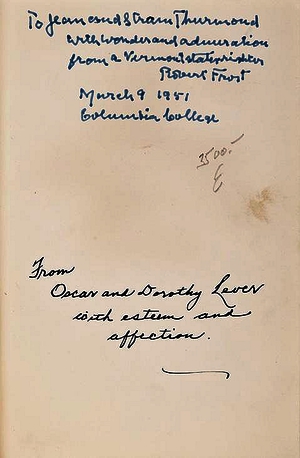 To Jean and Strom Thurmond
with wonder and admiration
from a Vermont states righter
Robert Frost
March 9 1951
Columbia College
3500.-
From
Oscar and Dorothy Lever
with esteem and
affection.